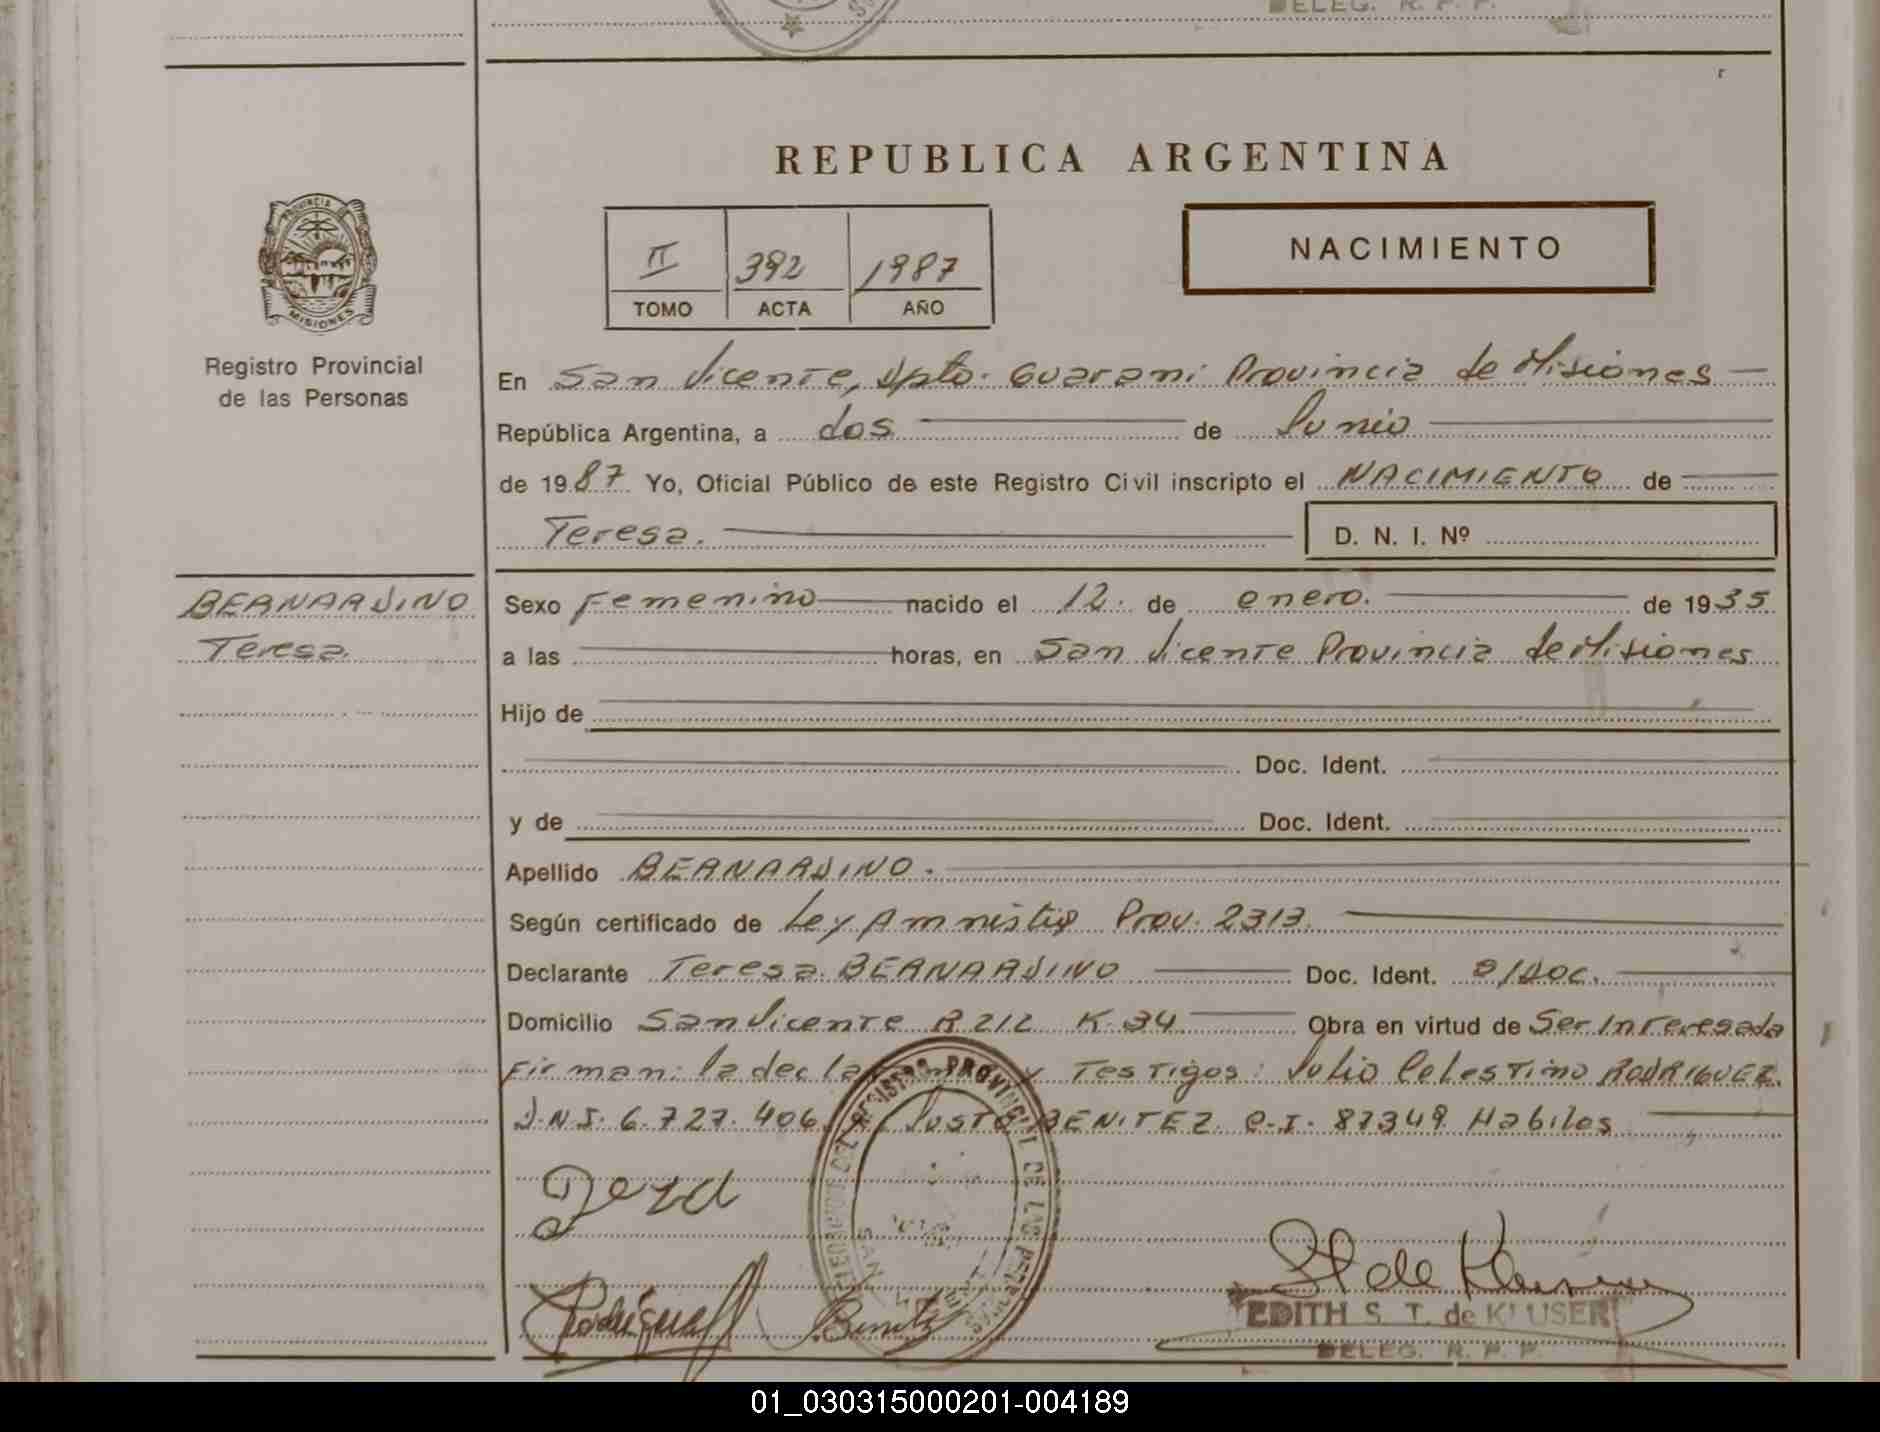 DELEG. R. P. P.
REPUBLICA ARGENTINA
PROVINCIA DE
MISIONES
Registro Provincial
de las Personas
II 392 1987
TOMO ACTA AÑO
NACIMIENTO
En San Vicente, Dpto. Guarani Provincia de Misiones
República Argentina, a dos de Junio
de 1987 Yo, Oficial Público de este Registro Civil inscripto el NACIMIENTO de
Teresa. D. N. I. Nº
BERNARDINO
Teresa
Sexo Femenino nacido el 12. de enero. de 1935.
a las horas, en San Vicente Provincia de Misiones
Hijo de
Doc. Ident.
y de Doc. Ident.
Apellido BERNARDINO.
Según certificado de Ley Amnistia Prov. 2313.
Declarante Teresa BERNARDINO Doc. Ident. S/DOC.
Domicilio San Vicente R 212 K 34 Obra en virtud de Ser Interesada
Firman: la y Testigos: Julio Celestino RODRIGUEZ.
D.N.I. 6.727.406 Justo BENITEZ C.I. 87349 Habiles
REGISTRO PROVINCIAL DE LAS PERSONAS
SAN
Rodriguez Benitez
EDITH S. T. de KLUSER
DELEG. R. P. P.
01_030315000201-004189